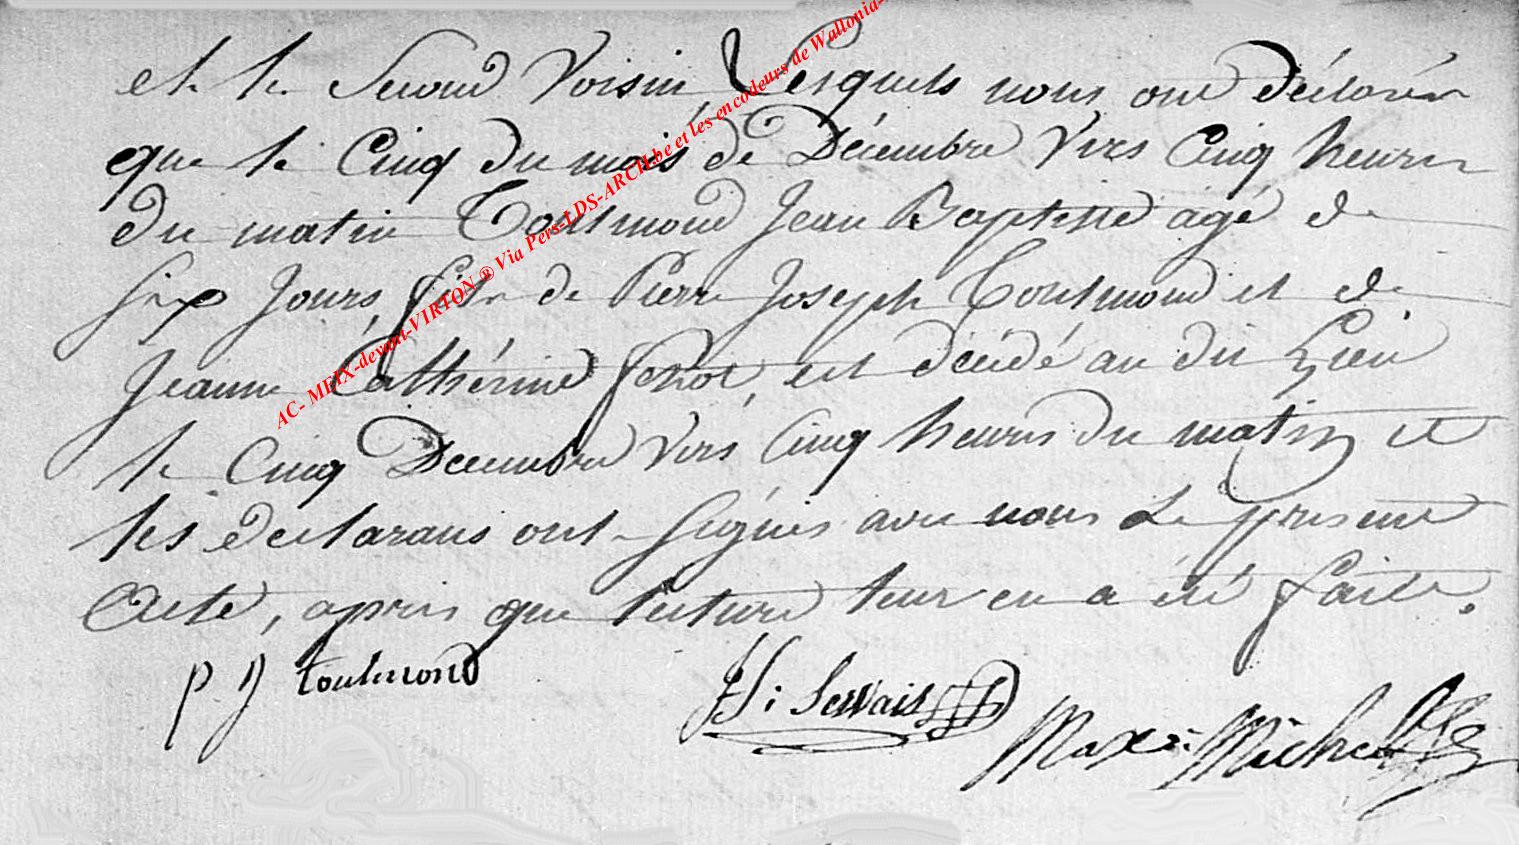 et le Second Voisin, Lesquels nous ont déclaré
que le Cinq du mois de Décembre Vers Cinq heures
du matin Toulmond Jean Baptiste agé de
Six Jours, fils de Pierre Joseph Toulmond et de
Jeanne Cathérine est décédé au dit Lieu
le Cinq Decembre Vers Cinq heures du matin et
les declarans ont Signés avec nous Le present
Acte, apris que lecture leur en a été faite.
p. J toulmond
J Servais
Michel
AC- MEIX-devant-VIRTON ® Via Pers-LDS-ARCH.be et les encodeurs de Wallonia-